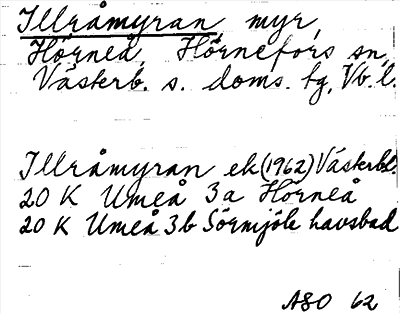 Illråmyran, myr,
Hörneå, Hörnefors sn,
Västerb. s. doms. tg, Vb. l.
Illråmyran ek (1962) Västerbl.
20 K Umeå 3a Hörneå
20 K Umeå 3b Sörmjöle havsbad
ASO 62